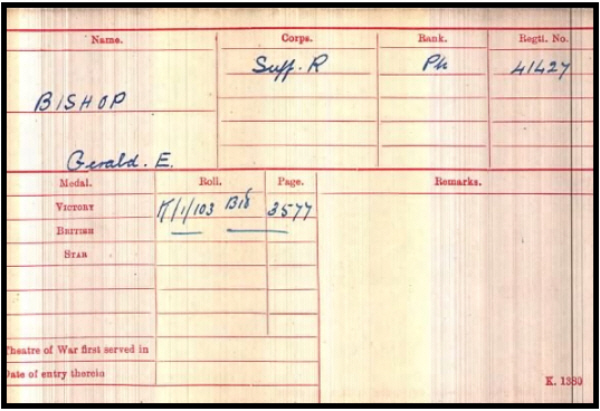 Name. Corps. Rank. Regtl. No.
Suff. R Pte 41427
BISHOP
Gerald. E.
Medal. Roll. Page. Remarks.
VICTORY K/1/103 B18 3577
BRITISH
STAR
Theatre of War first served in
Date of entry therein
K. 1380